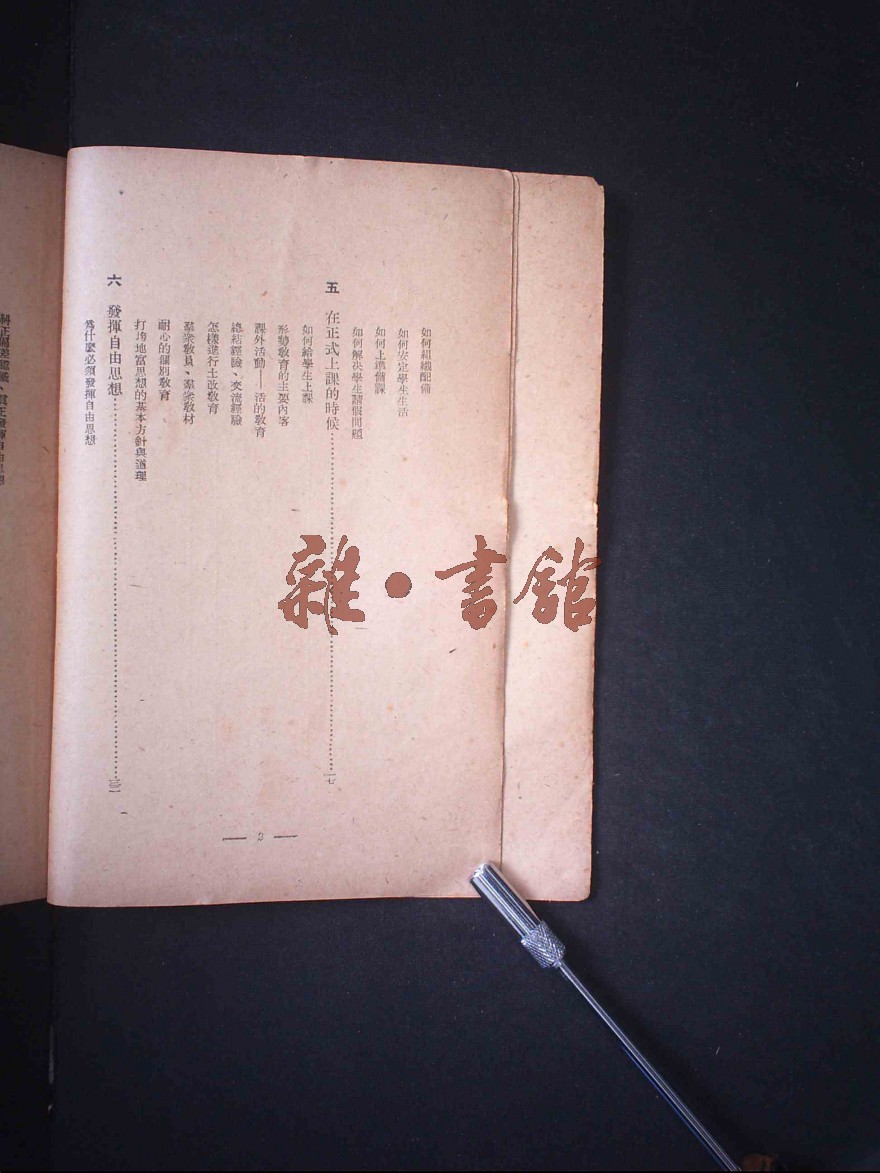 如何組織配備
如何安定學生生活
如何上準備課
如何解決學生請假問題
五 在正式上課的時候……一七
如何給學生上課
形勢教育的主要內容
課外活動——活的教育
總結經驗、交流經驗
怎樣進行土改教育
羣衆教員、羣衆教材
耐心的個別教育
打垮地富思想的基本方針與道理
六 發揮自由思想……三〇
爲什麼必須發揮自由思想
— 2 —
雜·書館